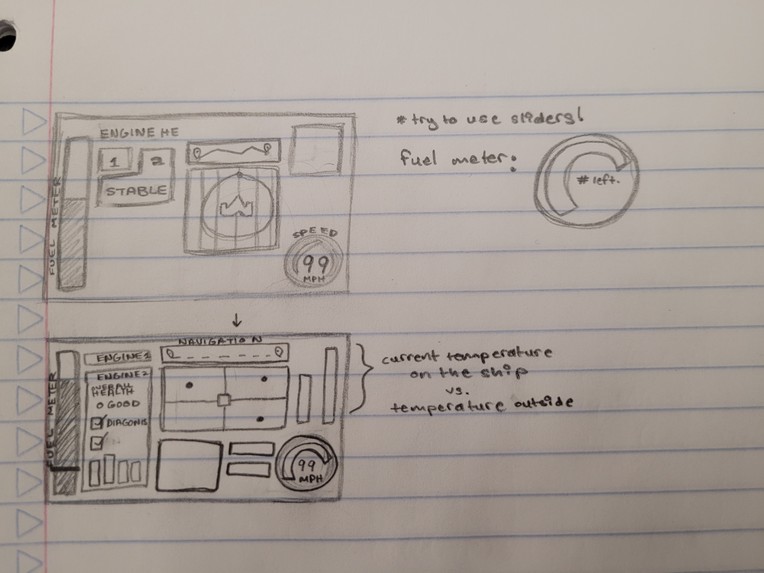 * try to use sliders!
fuel meter:
# left.
ENGINE HE
1 2
STABLE
FUEL METER
SPEED
99
MPH
NAVIGATION
ENGINE 1
ENGINE 2
OVERALL
HEALTH
GOOD
DIAGONIS
FUEL METER
99
MPH
current temperature
on the ship
vs.
temperature outside